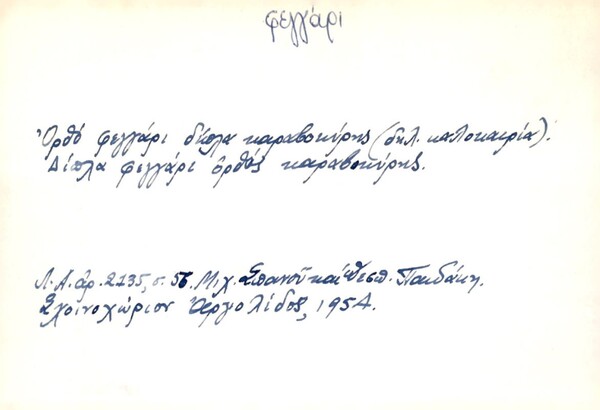 φεγγάρι
Ὀρθό φεγγάρι δίπλα καραβοκύρης (δηλ. καλοκαιρία).
Δίπλα φεγγάρι ὀρθός καραβοκύρης.
Λ.Α. ἀρ. 2135, σ. 56. Μιχ. Σπανοῦ καί Θεσπ. Παιδάκη.
Σχοινοχώριον Ἀργολίδος, 1954.